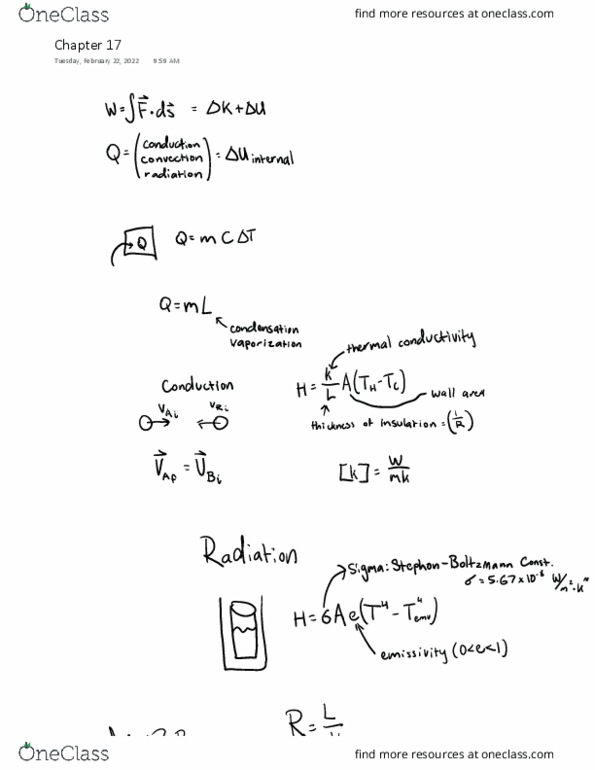 OneClass
find more resources at oneclass.com
Chapter 17
Tuesday, February 22, 2022 9:59 AM
W=∫F⃗·ds⃗ = ΔK+ΔU
Q=(conduction convection radiation)=ΔU internal
Q
Q=mCΔT
Q=mL
condensation
vaporization
thermal conductivity
Conduction
H=k/L A(T_H-T_C)
wall area
V_Ai V_Bi
thickness of insulation=(1/R)
V⃗_Af = V⃗_Bi
[k]=W/mk
Radiation
Sigma: Stephon-Boltzmann Const.
σ=5.67×10^-8 W/m²·K⁴
H=σAe(T⁴-T⁴_env)
emissivity (0<e<1)
R=L/k
OneClass
find more resources at oneclass.com